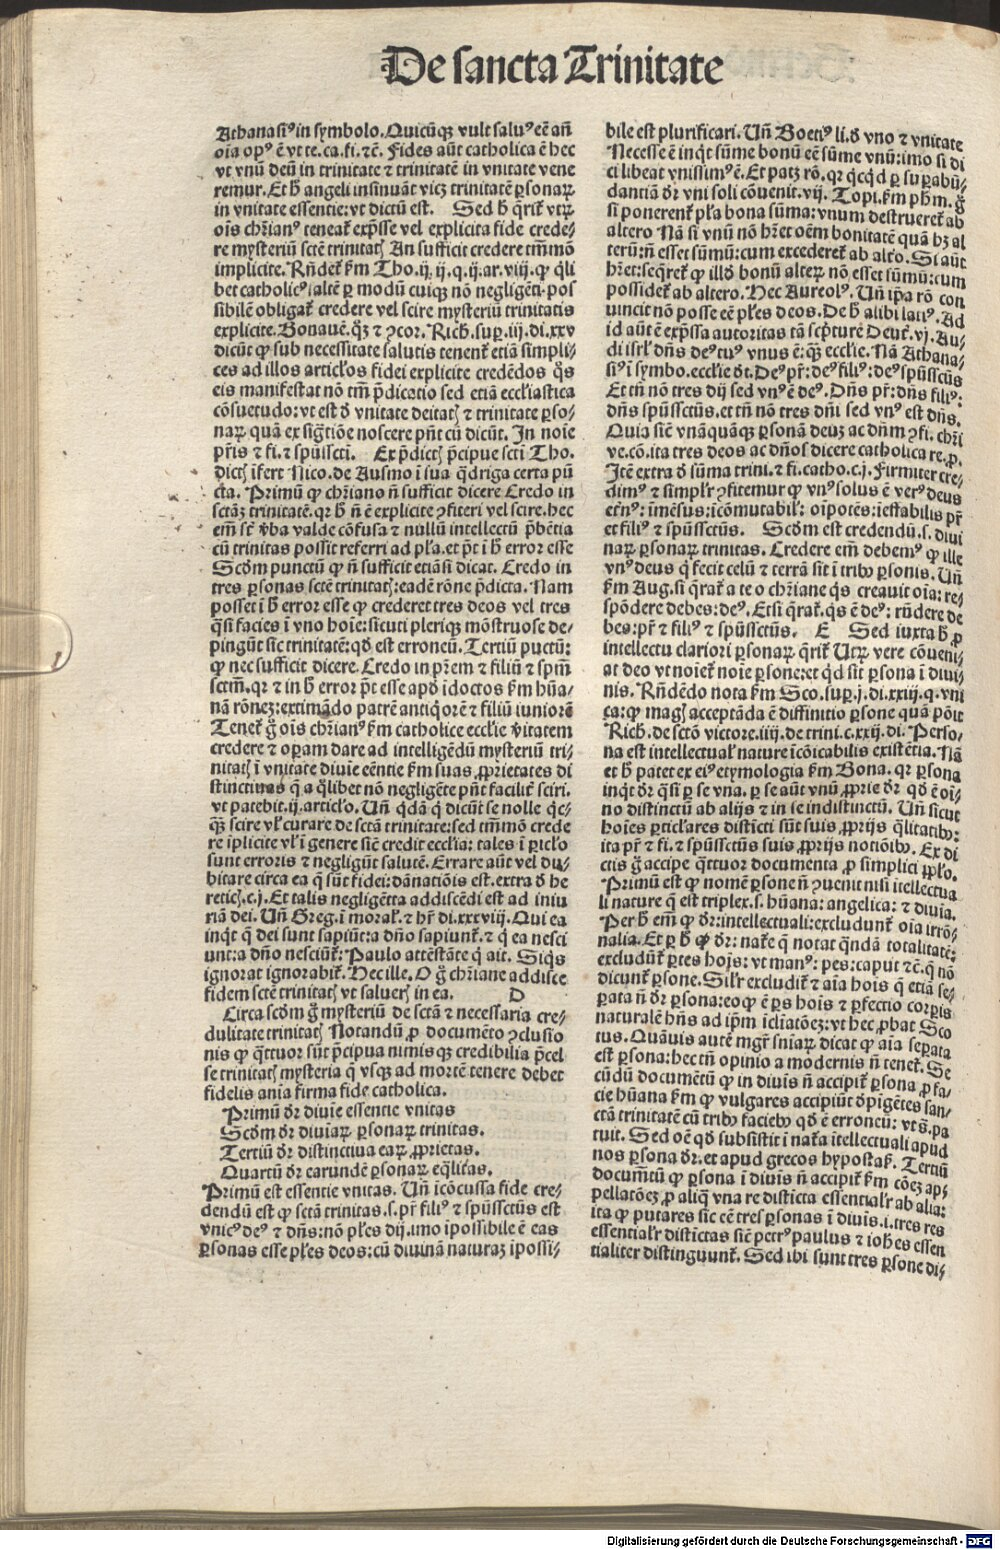 De sancta Trinitate
Athanasiꝰ in symbolo. Quicũqꝫ vult saluꝰ eē an̄
oīa opꝰ ē vt te. ca. fi. ⁊c̄. Fides aūt catholica ē hec
vt vnū deū in trinitate ⁊ trinitatē in vnitate vene
remur. Et h̄ angeli insinuāt vicꝫ trinitatē ꝑsonaꝝ
in vnitate essentie: vt dictū est. Sed h̄ q̄rit̄ vtꝝ
oīs chr̄ianꝰ teneat̄ exp̄sse vel explicita fide crede/
re mysteriū sct̄e trinitatꝭ An sufficit credere tm̄mō
implicite. Rn̄det̄ ẜm Tho. ij. ij. q. ij. ar. viij. ꝙ q̄li
bet catholicꝰ saltē ꝑ modū cuiqꝫ nō negligēti pos
sibilē obligat̄ credere vel scire mysteriū trinitatis
explicite. Bonauē. q̄ꝫ ⁊ ꝯcor. Rich. suꝑ. iij. di. xxv
dicūt ꝙ sub necessitate salutis tenent̄ etiā simpli/
ces ad illos articl̓os fidei explicite credēdos q̄s
eis manifestat nō tm̄ p̄dicatio sed etiā eccl̓iastica
cōsuetudo: vt est ď vnitate deitatꝭ ⁊ trinitate ꝑso/
naꝝ quā ex sig̅tiōe noscere pn̄t cū dicūt. In noīe
pr̄is ⁊ fi. ⁊ spūssct̄i. Ex p̄dictꝭ p̄cipue scti Tho.
dictꝭ īfert Nico. de Ausmo ī sua q̄driga certa pū
cta. Primū ꝙ chr̄iano n̄ sufficit dicere Credo in
sctāꝫ trinitatē. qꝛ h̄ n̄ ē explicite ꝯfiteri vel scire. hec
em̄ st̄ v̄ba valde cōfusa ⁊ nullū intellectū p̄bētia
cū trinitas possit referri ad pl̓a. et p̄t ī h̄ error esse
Scďm punctū ꝙ n̄ sufficit etiāsi dicat. Credo in
tres ꝑsonas scte trinitatꝭ: eadē rōne p̄dicta. Nam
posset ī h̄ error esse ꝙ crederet tres deos vel tres
q̄si facies ī vno hoīe: sicuti pleriqꝫ mōstruose de/
pingūt sic trinitatē: qď est erroneū. Tertiū pūctū:
ꝙ nec sufficit dicere. Credo in pr̄em ⁊ filiū ⁊ spm̄
sctm̄. qꝛ ⁊ in h̄ error p̄t esse apď idoctos ẜm hūa/
nā rōneꝫ: extimādo patrē antiq̄orē ⁊ filiū iuniorē
Tenet̄ g̊ oīs chr̄ianꝰ ẜm catholice eccl̓ie v̓itatem
credere ⁊ oꝑam dare ad intelligēdū mysteriū tri/
nitatꝭ ī vnitate diuīe eēntie ẜm suas ꝓprietates di
stinctiuas q̄ a q̄libet nō negligēte pn̄t facilit̄ sciri.
vt patebit. ij. articl̓o. Vn̄ q̄dā q̄ dicūt se nolle q̄c/
qꝫ scire vl̓ curare de sctā trinitate: sed tm̄mō crede
re īplicite vl̓ ī genere sic̄ credit eccl̓ia: tales ī ꝑicl̓o
sunt erroris ⁊ negligūt salutē. Errare aūt vel du/
bitare circa ea q̄ sūt fidei: dānatiōis est. extra ď he
reticꝭ. c. j. Et talis negligētia addiscēdi est ad iniu
riā dei. Vn̄ Greg. ī moral̓. ⁊ hr̄ di. xxxviij. Qui ea
inq̄t q̄ dei sunt sapiūt: a dño sapiunt̄. ⁊ q̄ ea nesci
unt: a dño nesciūt̄: Paulo attestāte q̄ ait. Siq̄s
ignorat ignorabit̄. Hec ille. O g̊ chr̄iane addisce
fidem scte trinitatꝭ vt salueris in ea. D
Circa scďm g̊ mysteriū de sctā ⁊ necessaria cre/
dulitate trinitatꝭ Notandū ꝓ documēto ꝯclusio
nis ꝙ q̄ttuor sūt p̄cipua nimisqꝫ credibilia p̄cel
se trinitatꝭ mysteria q̄ vsqꝫ ad mortē tenere debet
fidelis anīa firma fide catholica.
Primū ďr diuīe essentie vnitas
Scďm ďr diuīaꝝ ꝑsonaꝝ trinitas.
Tertiū ďr distinctiua earꝝ ꝓprietas.
Quartū ďr earundē ꝑsonaꝝ eq̄litas.
Primū est essentie vnitas. Vn̄ icōcussa fide cre/
dendū est ꝙ sctā trinitas. s. pr̄ filiꝰ ⁊ spūssctūs est
vnicꝰ deꝰ ⁊ dn̄s: nō pl̓es dij. imo ipossibile ē eas
ꝑsonas esse pl̓es deos: cū diuinā naturaꝫ ipossi/
bile est plurificari. Vn̄ Boetiꝰ li. ď vno ⁊ vnitate
Necesse ē inq̄t sūme bonū eē sūme vnū: imo si di
ci libeat vnissimꝰ ē. Et patꝫ rō. qꝛ q̄cq̄d ꝑ suꝑabū/
dantiā ďr vni soli cōuenit. vij. Topi. ẜm phm̄. g̊
si ponerent̄ pl̓a bona sūma: vnum destrueret̄ ab
altero Nā si vnū nō hr̄et oēm bonitatē quā hꝫ al
terū: n̄ esset sūmū: cum excederet̄ ab alt̓o. Si aūt
hr̄et: seq̄ret̄ ꝙ illď bonū alteꝝ nō esset sūmū: cum
possidet̄ ab altero. Hec Aureolꝰ. Vn̄ ip̄a rō con
uincit nō posse eē pl̓es deos. De h̄ alibi latiꝰ. Ad
id aūt ē exp̄ssa autoritas tā scp̄turē Deut̄. vj. Au/
di isrl̓ dn̄s deꝰ tuꝰ vnus ē: qꝫ eccl̓ie. Nā Athana/
siꝰ ī symbo. eccl̓ie ďt. Deꝰ pr̄: deꝰ filiꝰ: deꝰ spūssctūs
Et tn̄ nō tres dij sed vnꝰ ē deꝰ. Dn̄s pr̄: dn̄s filiꝰ:
dn̄s spūssctūs. et tn̄ nō tres dn̄i sed vnꝰ est dn̄s.
Quia sic̄ vnāquāqꝫ ꝑsonā deuꝫ ac dn̄m ꝯfi. chr̄i
ve. cō. ita tres deos ac dn̄os dicere catholica re. ꝓ.
Itē extra ď sūma trini. ⁊ fi. catho. c. j. Firmiter cre/
dimꝰ ⁊ simpl̓r ꝯfitemur ꝙ vnꝰ solus ē verꝰ deus
et̓nꝰ: imēsus: icōmutabil̓: oīpotēs: ieffabilis pr̄
et filiꝰ ⁊ spūssctūs. Scďm est credendū. s. diui
naꝝ ꝑsonaꝝ trinitas. Credere em̄ debemꝰ ꝙ ille
vnꝰ deus q̄ fecit celū ⁊ terrā sit ī tribꝰ ꝑsonis. Vn̄
ẜm Aug. si q̄rat̄ a te o chr̄iane q̄s creauit oīa: re/
spōdere debes: deꝰ. Etsi q̄rat̄. q̄s ē deꝰ: rn̄dere de
bes: pr̄ ⁊ filiꝰ ⁊ spūssctūs. E Sed iuxta h̄ ꝓ
intellectu clariori ꝑsonaꝝ q̄rit̄ Vtꝝ vere cōueni/
at deo vt noīet̄ noīe ꝑsone: et qď sit ꝑsona ī diui/
nis. Rn̄dēdo nota ẜm Sco. suꝑ. j. di. xxiij. q. vni
ca: ꝙ magꝭ acceptāda ē diffinitio ꝑsone quā pōit
Rich. de sctō victore. iiij. de trini. c. xxij. di. Perso/
na est intellectual̓ nature icōicabilis existētia. Nā
et h̄ patet ex eiꝰ etymologia ẜm Bona. qꝛ ꝑsona
inq̄t ďr q̄si ꝑ se vna. ꝑ se aūt vnū ꝓprie ďr qď ē oī/
no distinctū ab alijs ⁊ in se indistinctū. Vn̄ sicut
hoīes ꝑticl̓ares distīcti sūt suis ꝓprijs q̄litatibꝰ:
ita pr̄ ⁊ fi. ⁊ spūssctūs suis ꝓprijs notiōibꝰ. Ex di
ctis g̊ accipe q̄ttuor documenta ꝓ simplici pp̄lo.
Primū est ꝙ nomē ꝑsone n̄ ꝯuenit nisi itellectua
li nature q̄ est triplex. s. hūana: angelica: ⁊ diuīa.
Per h̄ em̄ ꝙ ďr: intellectuali: excludunt̄ oīa irrō/
nalia. Et ꝑ h̄ ꝙ ďr: nat̄e q̄ notat q̄ndā totalitatē:
excludunt̄ ꝑtes hoīs: vt manꝰ: pes: caput ⁊c̄. q̄ nō
dicunt̄ ꝑsone. Sil̓r excludit̄ ⁊ aīa hoīs q̄ etiā se/
ꝑata n̄ ďr ꝑsona: eo ꝙ ē ꝑs hoīs ⁊ ꝑfectio corꝑis
naturalē hn̄s ad ip̄m iclīatōeꝫ: vt hec ꝓbat Sco
tus. Quāuis autē mgr̄ sniaꝝ dicat ꝙ aīa seꝑata
est ꝑsona: hec tn̄ opinio a modernis n̄ tenet̄. Se
cūdū documētū ꝙ in diuīs n̄ accipit̄ ꝑsona ꝓ fa/
cie hūana ẜm ꝙ vulgares accipiūt ďpīgētes san/
ctā trinitatē cū tribꝰ faciebꝰ qď ē erroneū: vt s̄. pa
tuit. Sed oē qď subsistit ī nat̄a itellectuali apud
nos ꝑsona ďr. et apud grecos hypostas̄. Tertiū
documt̄ū ꝙ ꝑsona ī diuīs n̄ accipit̄ ẜm cōeꝫ ap/
pellatōeꝫ ꝓ aliq̄ vna re distīcta essential̓r ab alia:
ita ꝙ putares sic eē tres ꝑsonas ī diuīs. i. tres res
essential̓r distīctas sic̄ petrꝰ paulus ⁊ ioh̄es essen
tialiter distinguunt̄. Sed ibi sunt tres ꝑsone di/
Digitalisierung gefördert durch die Deutsche Forschungsgemeinschaft - DFG